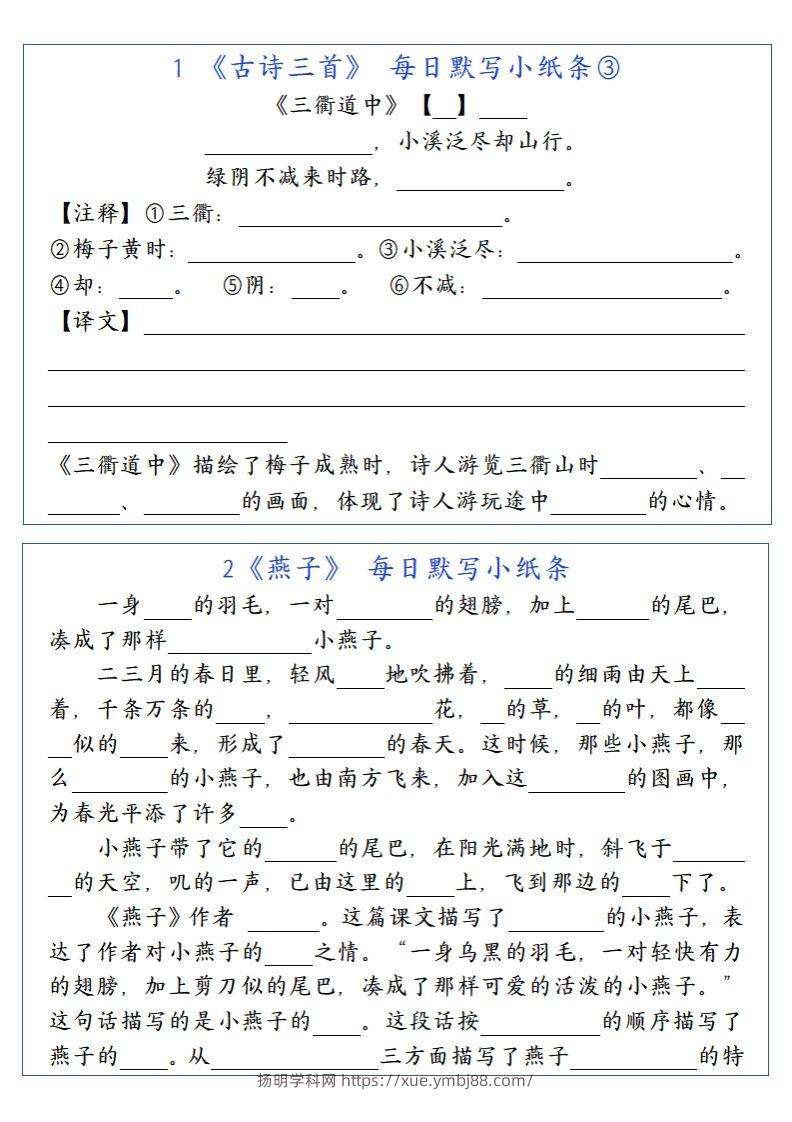 1 《古诗三首》 每日默写小纸条③
《三衢道中》【__】____
______________，小溪泛尽却山行。
绿阴不减来时路，______________。
【注释】①三衢：______________________。
②梅子黄时：______________。③小溪泛尽：__________________。
④却：____。 ⑤阴：____。 ⑥不减：____________________。
【译文】__________________________________________________
__________________________________________________________
__________________________________________________________
____________________
《三衢道中》描绘了梅子成熟时，诗人游览三衢山时________、__
______、________的画面，体现了诗人游玩途中________的心情。
2《燕子》 每日默写小纸条
一身____的羽毛，一对________的翅膀，加上______的尾巴，
凑成了那样____________小燕子。
二三月的春日里，轻风____地吹拂着，____的细雨由天上____
着，千条万条的____，____________花，__的草，__的叶，都像__
__似的____来，形成了________的春天。这时候，那些小燕子，那
么________的小燕子，也由南方飞来，加入这________的图画中，
为春光平添了许多____。
小燕子带了它的______的尾巴，在阳光满地时，斜飞于______
__的天空，叽的一声，已由这里的____上，飞到那边的____下了。
《燕子》作者 ______。这篇课文描写了________的小燕子，表
达了作者对小燕子的____之情。“一身乌黑的羽毛，一对轻快有力
的翅膀，加上剪刀似的尾巴，凑成了那样可爱的活泼的小燕子。”
这句话描写的是小燕子的____。这段话按__________的顺序描写了
燕子的____。从______________三方面描写了燕子__________的特
扬明学科网 https://xue.ymbj88.com/